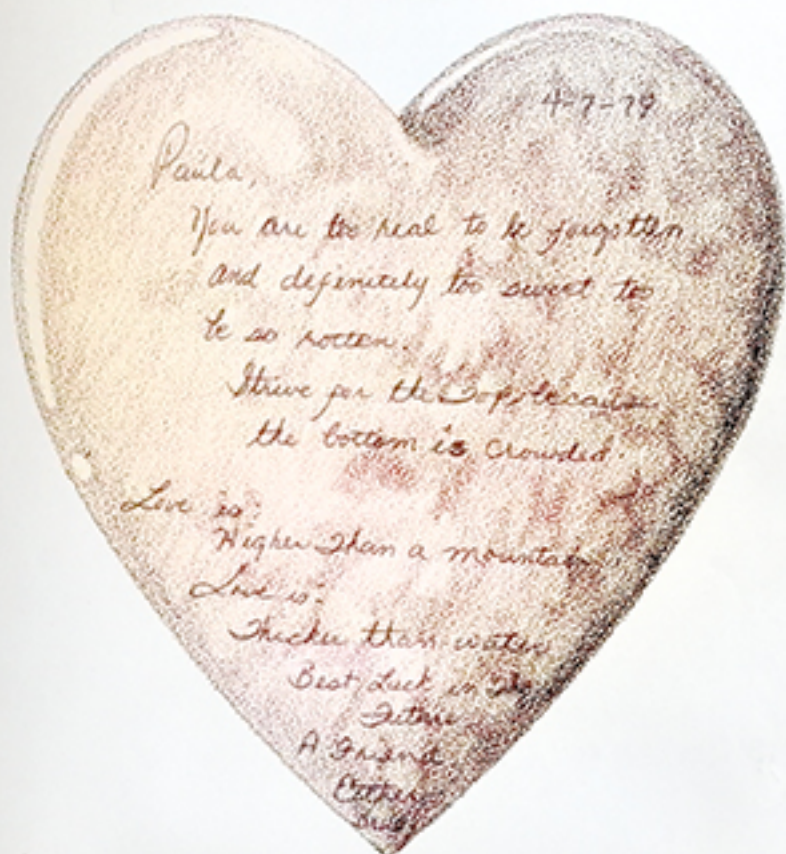 4-7-79
Paula,
You are too real to be forgotten
and definitely too sweet to
be so rotten.
Strive for the Top because
the bottom is crowded.
Love is:
Higher Than a mountain
Love is:
Thicker than water
Best Luck in The
Future
A Friend
Esther